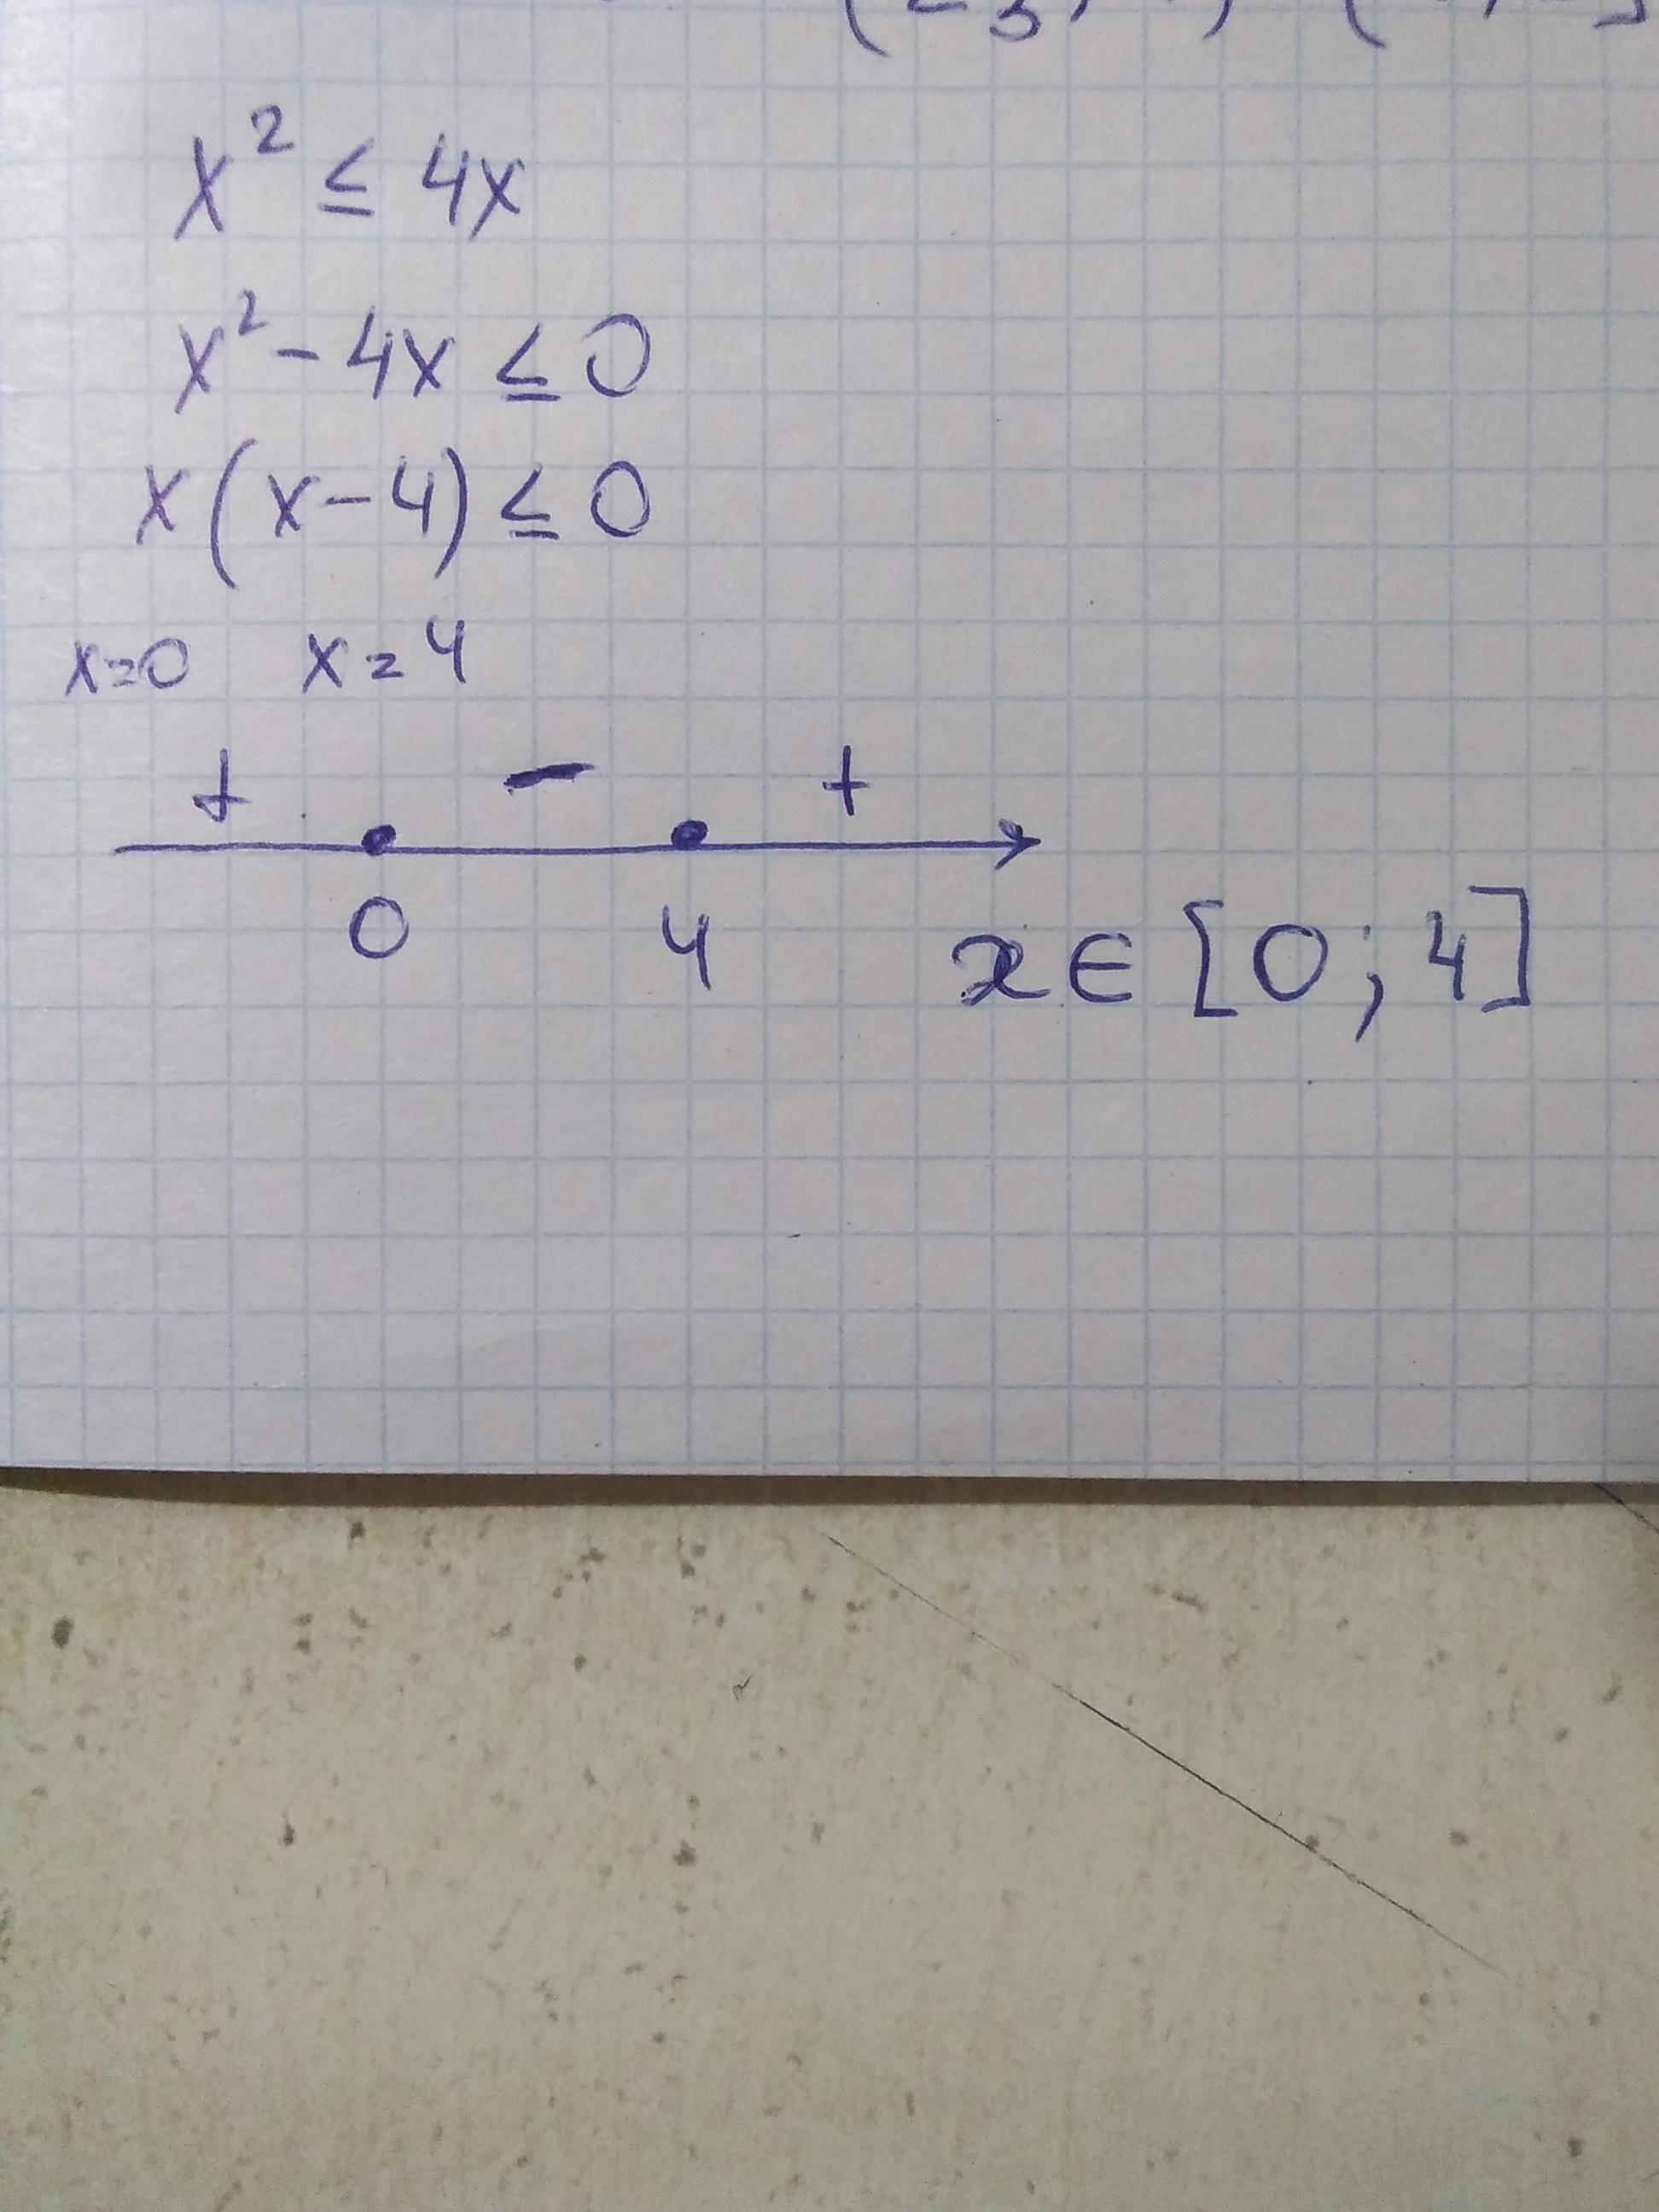 x² ≤ 4x
x² - 4x ≤ 0
x(x-4) ≤ 0
x=0 x=4
+ - +
0 4
x∈[0;4]